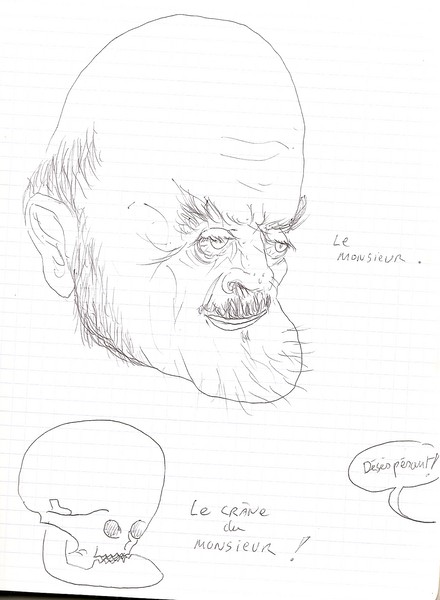 Le
MONSIEUR.
Désespérant!
Le CRÂNE
du
MONSIEUR!